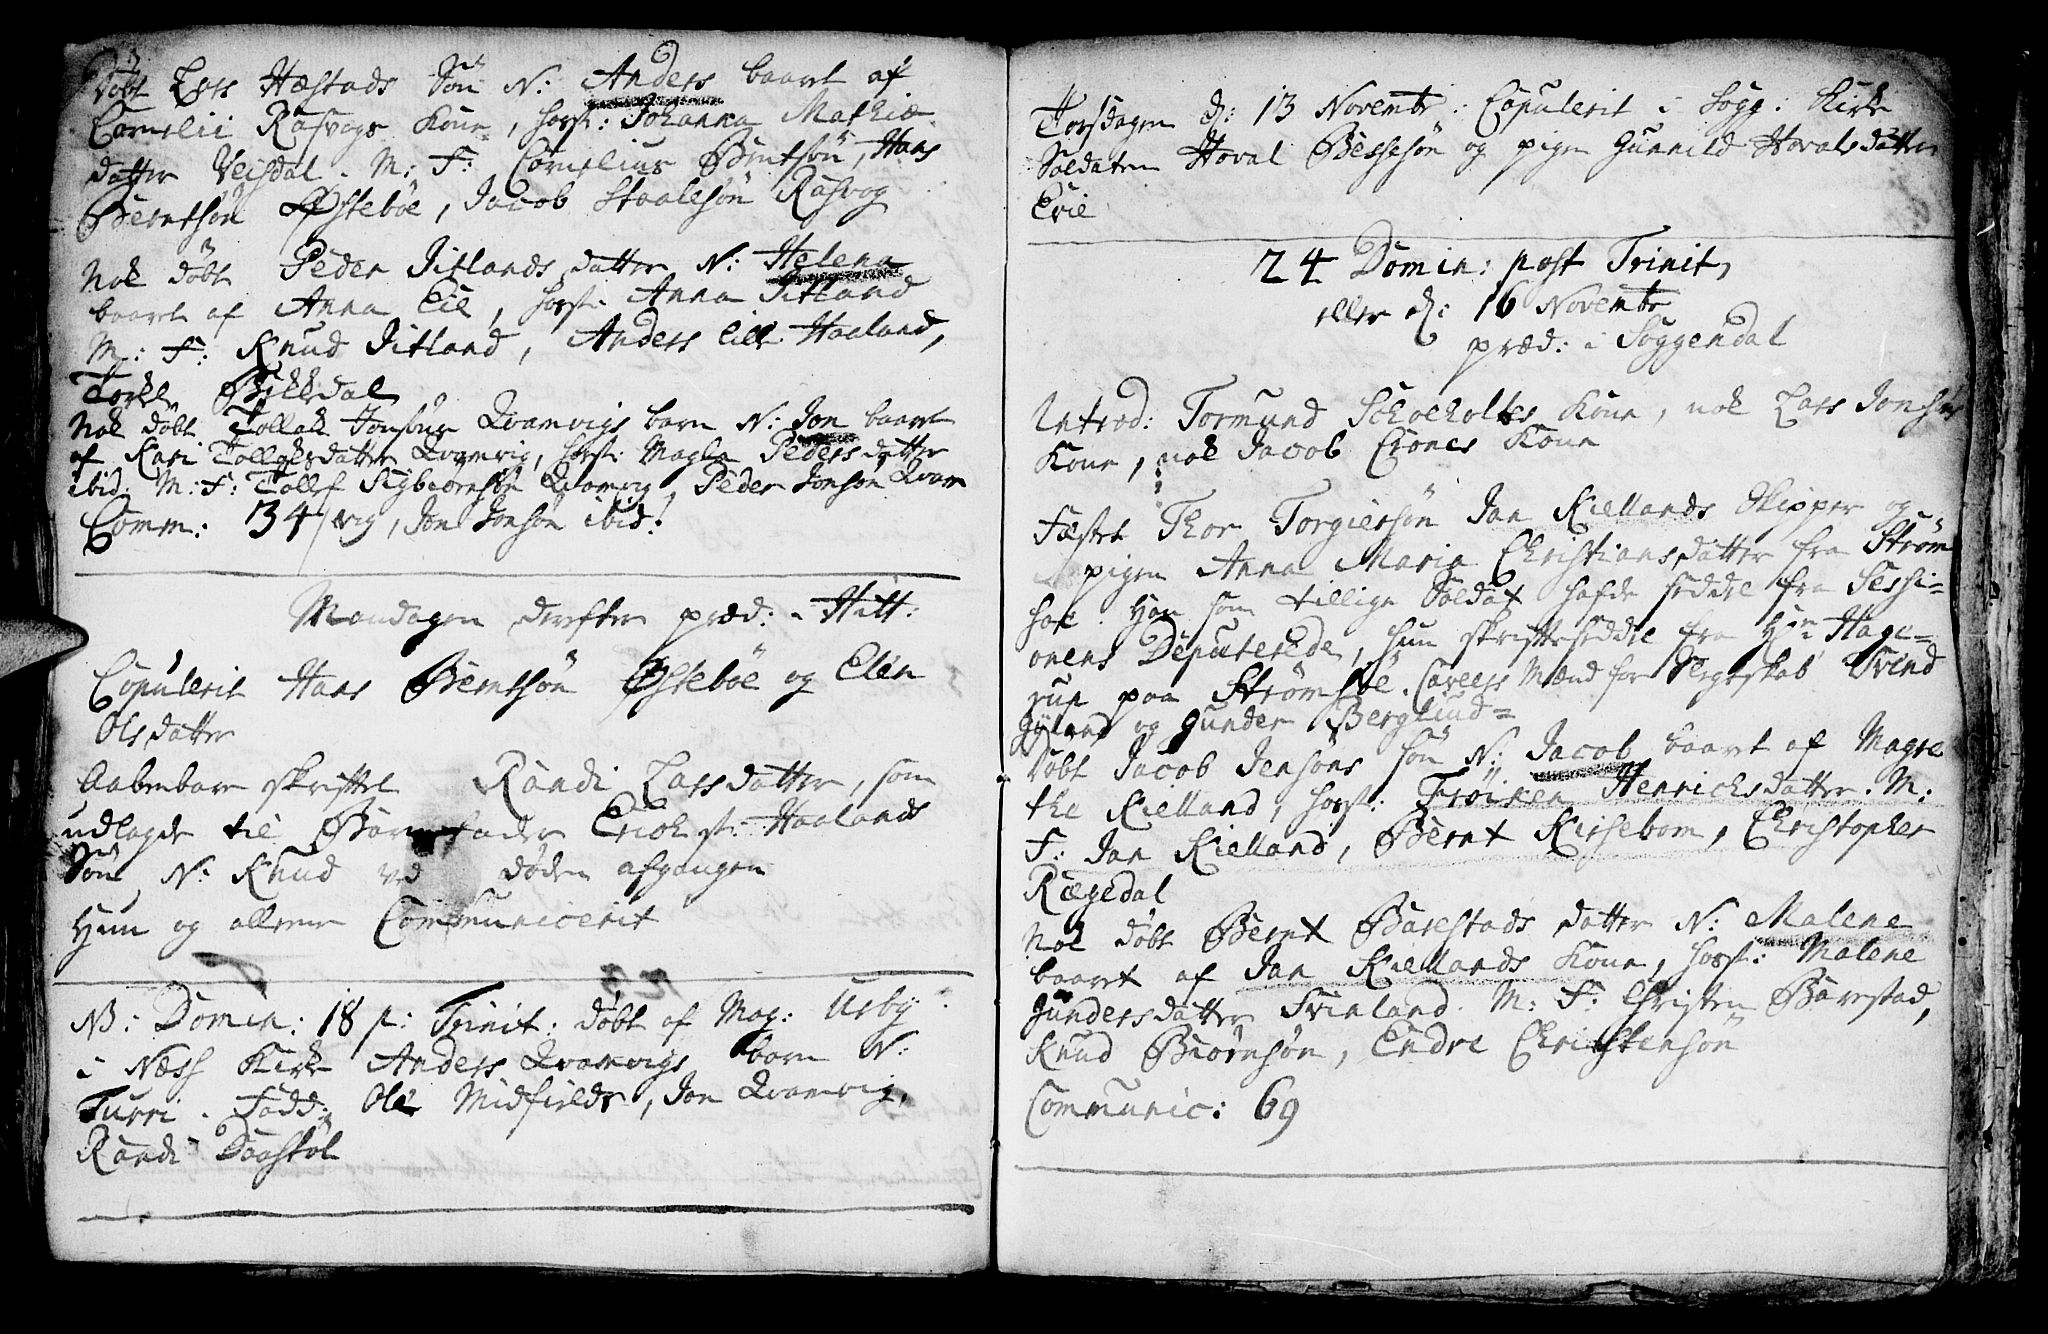 Døbt Lars Hæstads Søn N: Anders baaret af
Cornelii Rasvogs Kone, horst: Johanna Mathiæ
datter Veisdal. M: F: Cornelius Bentsøn, Hans
Berntsøn Østebøe, Jacob Staalesøn Rasvog
Nok døbt Peder Jitlands datter N: Helena
baaret af Anna Eie, horst: Anna Jitland
M: F: Knud Jitland, Anders lille Haaland,
Torkel Bekkedal
Nok døbt Tollak Jonsøns Qvamvigs barn N: Jon baaret
af Kari Tollaksdatter Qvamvig, horst: Magla Pedersdatter
ibid: M: F: Tollef Sigbiørnsøn Qvamvig, Peder Jonsøn Qvam
Comm: 34 / vig, Jon Jonsøn ibid:
Mandagen derefter præd: i Hitt:
Copulerit Hans Berntsøn Østebøe og Elen
Olsdatter
Aabenbare skriftet Randi Larsdatter, som
udlagde til Barnefader Erich st: Haalands
Søn N: Knud ved døden afgangen
Hun og alleene Communicerit
NB: Domin: 18 p: Trinit: døbt af Mag: Usby
i Næss Kirke Anders Qvamvigs barn N:
Turri. Fadd: Ole Midfields, Jon Qvamvig,
Randi Daaskol
Torsdagen d: 13 Novembr: Copulerit i Sogg: Kirke
Soldaten Hoval Bessesøn og pigen Gunnild Hovalsdatter
Evie
24 Domin: post Trinit,
eller d: 16 Novembr
præd: i Soggendal
Introd: Tormund Schoeholtes Kone, nok Lars Jonsens
Kone, nok Jacob Crones Kone
Fæstet Thor Torgiersøn Jan Kiellands Skipper og
pigen Anna Maria Christiansdatter fra Strøm
søe. Han som tillige Soldat hafde seddel fra Sessi-
onens Deputerede, hun skriftseddel fra Hr: Hage-
rup paa Strømsøe. Caveers Mænd for Svegskab Svend
Gyland og Gunder Berglund
Døbt Jacob Jensøns søn N: Jacob baaret af Magre
the Kielland, horst: Frøiken Henrichsdatter. M:
F: Jan Kielland, Bernt Kirsebom, Christopher
Rægedal
Nok døbt Bernt Barestads datter N: Malene
baaret af Jan Kiellands Kone, horst: Malene
Gundersdatter Svinland. M: F: Christen Barestad,
Knud Biørnsøn, Endre Christensøn
Communic: 69